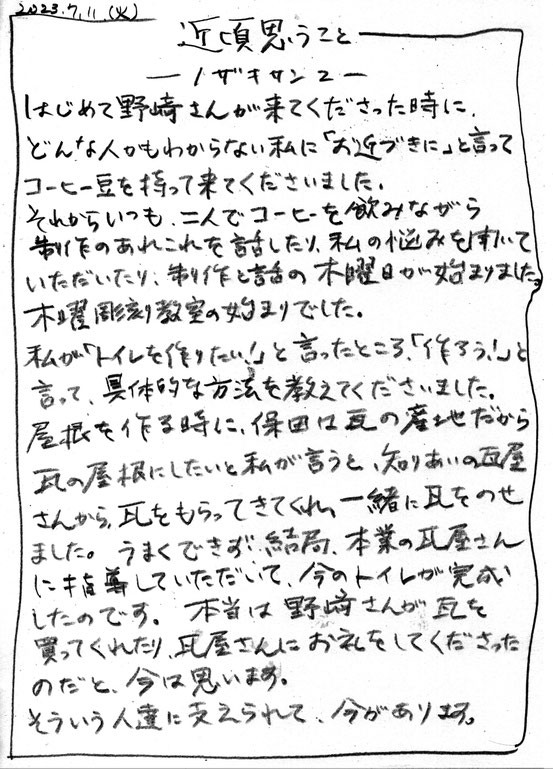 2023.7.11(火)
近頃思うこと
ーノザキサン2ー
はじめて野崎さんが来てくださった時に、
どんな人かもわからない私に「お近づきに」と言って
コーヒー豆を持って来てくださいました。
それからいつも、二人でコーヒーを飲みながら
制作のあれこれを話したり、私の悩みを聞いて
いただいたり、制作と話の木曜日が始まりました。
木曜彫刻教室の始まりでした。
私が「トイレを作りたい!」と言ったところ、「作ろう!」と
言って、具体的な方法を教えてくださいました。
屋根を作る時に、保田は瓦の産地だから
瓦の屋根にしたいと私が言うと、知りあいの瓦屋
さんから、瓦をもらってきてくれ、一緒に瓦をのせ
ました。うまくできず、結局、本業の瓦屋さん
に指導していただいて、今のトイレが完成
したのです。本当は野崎さんが瓦を
買ってくれたり、瓦屋さんにお礼をしてくださった
のだと、今は思います。
そういう人達に支えられて、今があります。